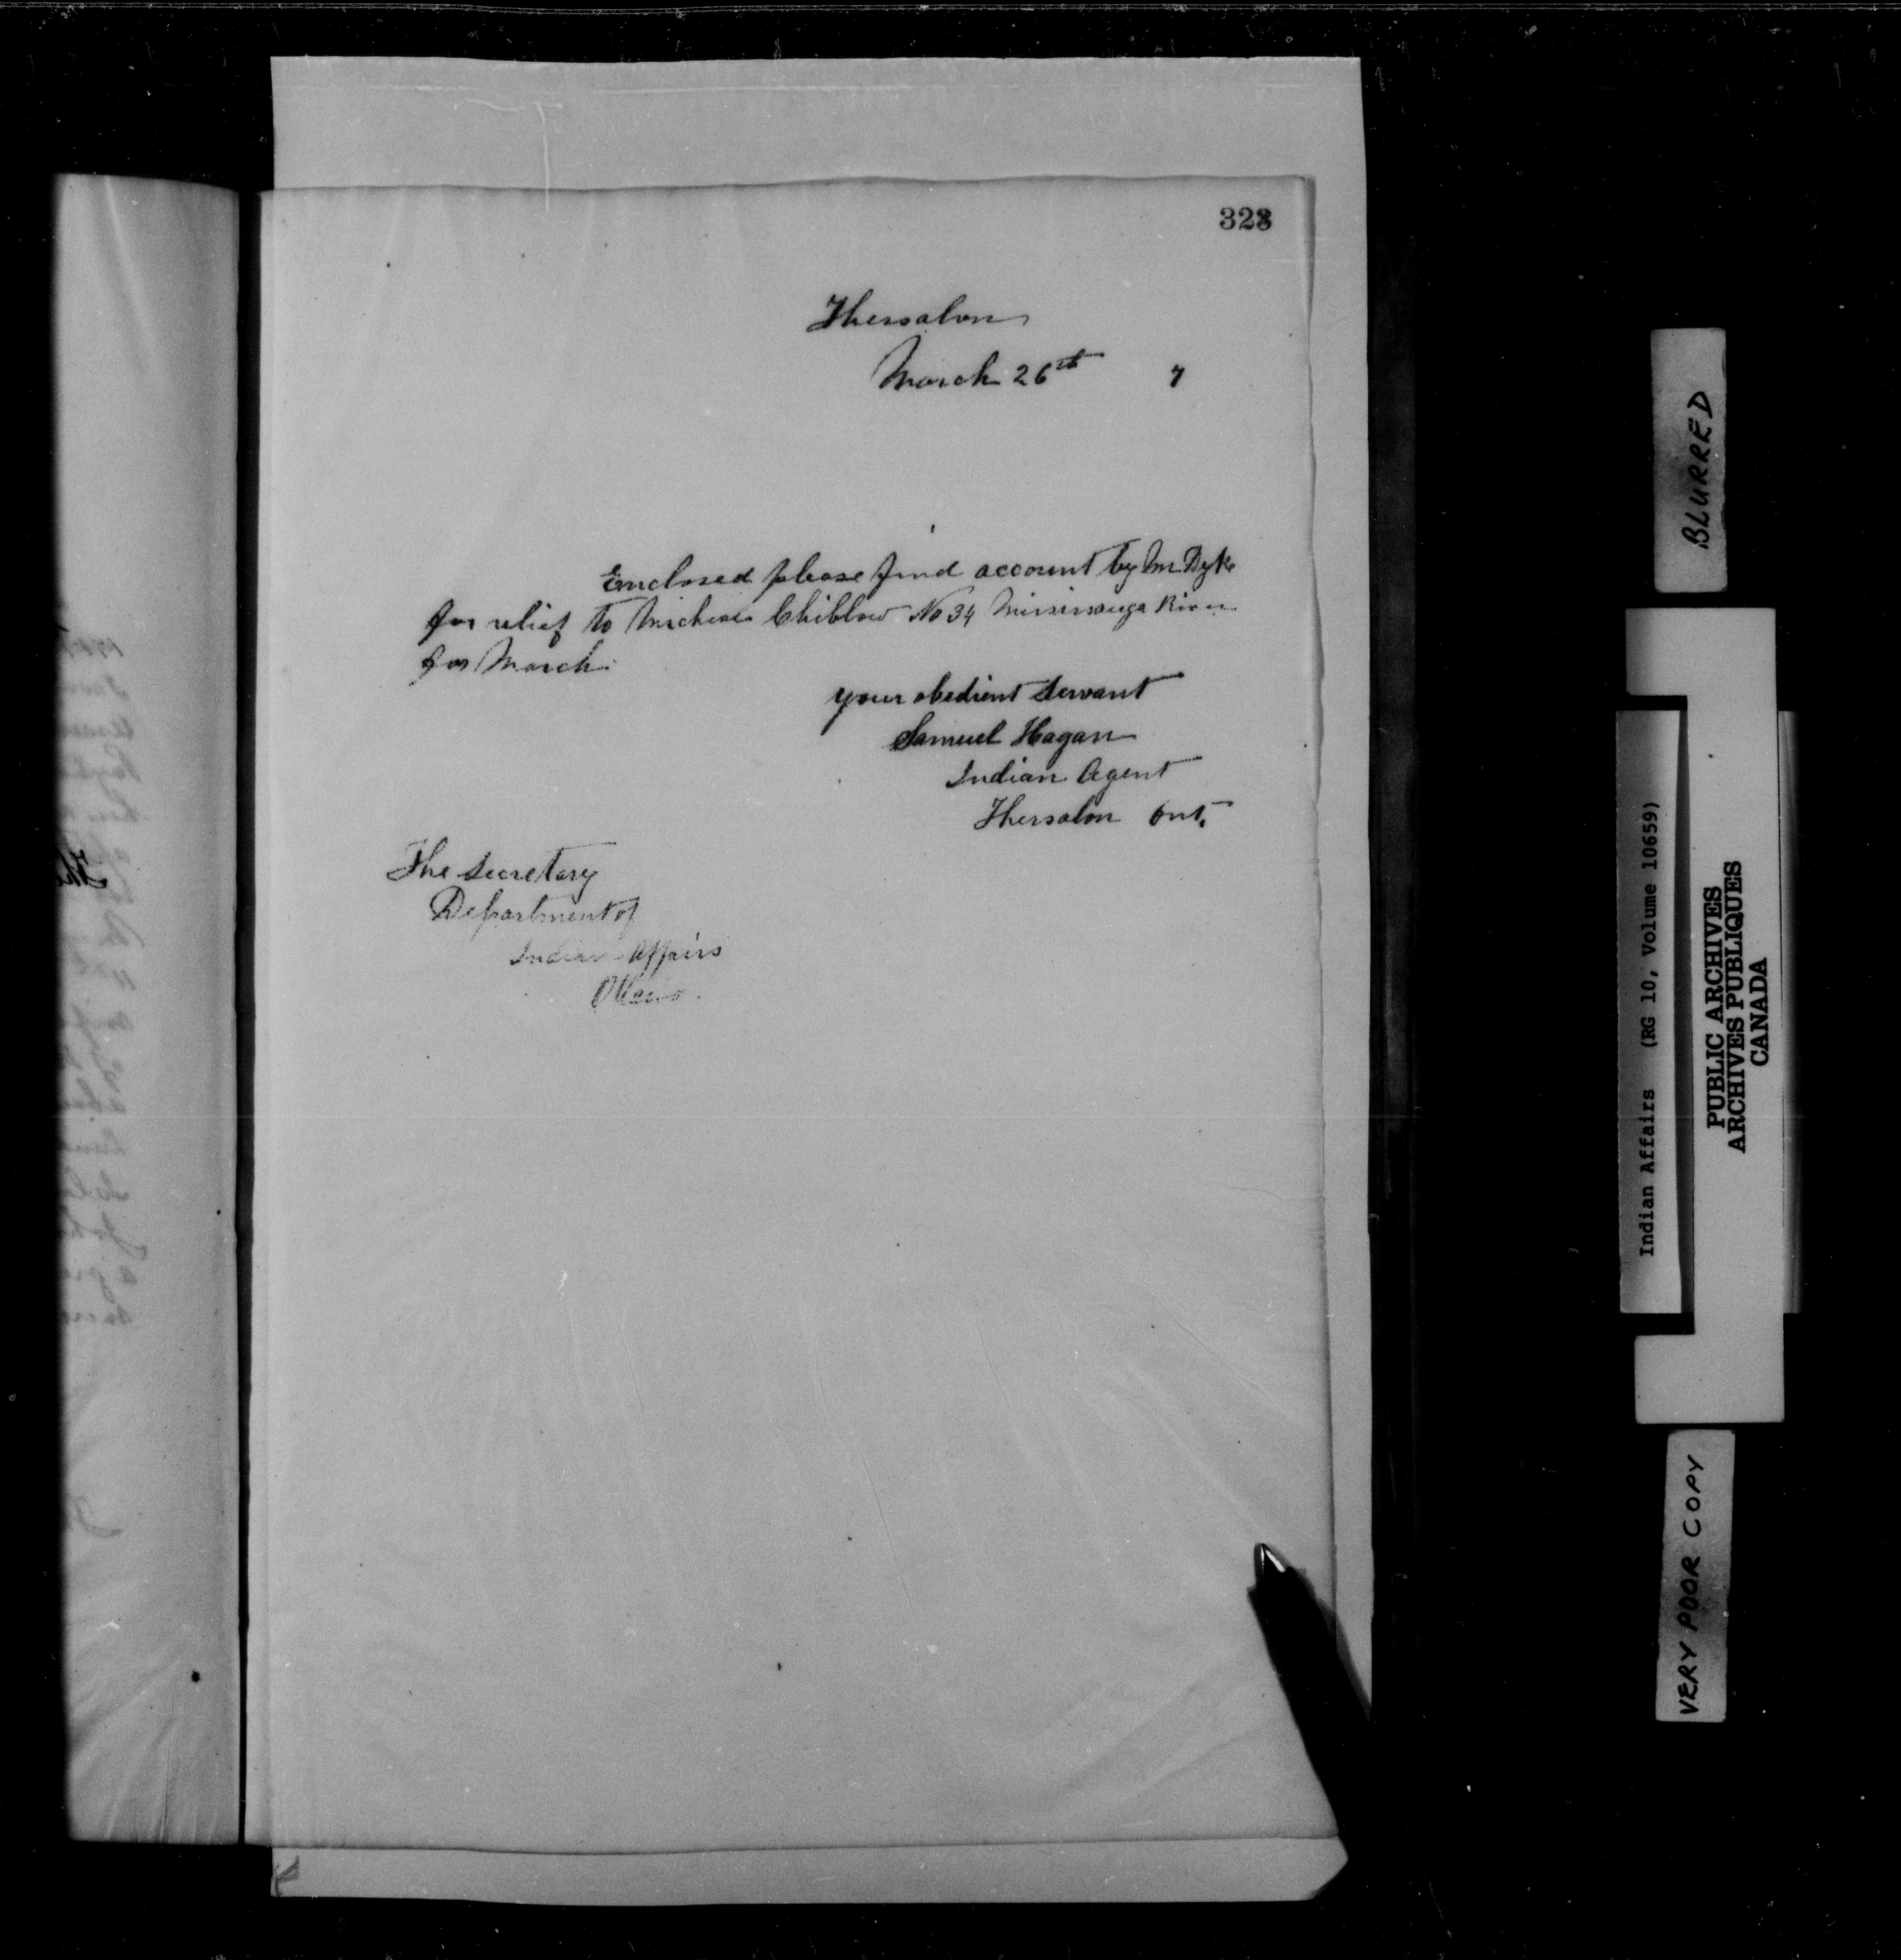 328
Thessalon
March 26th 7
Enclosed please find account by Mr Dyke
for relief to Micheal Chiblow No 34 Mississauga River
for March.
your obedient servant
Samuel Hagan
Indian Agent
Thessalon Ont.
The Secretary
Department of
Indian Affairs
Ottawa.
BLURRED
Indian Affairs (RG 10, Volume 10659)
PUBLIC ARCHIVES
ARCHIVES PUBLIQUES
CANADA
VERY POOR COPY